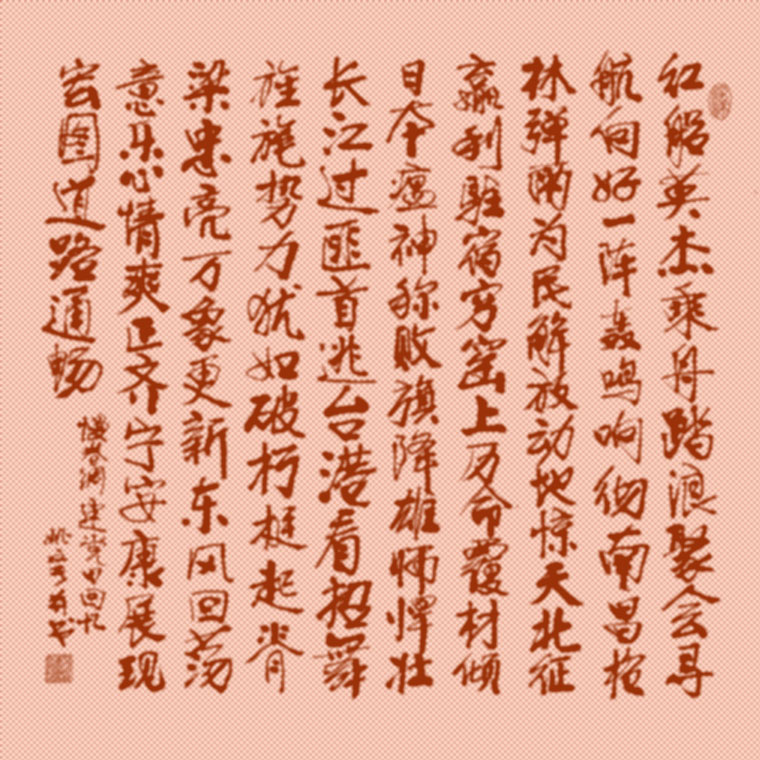 红船英杰乘舟踏浪聚会寻
航向好一阵轰鸣响彻南昌枪
林弹雨为民解放动地惊天北征
赢利驻宿穷窑上万命覆材倾
日本瘟神称败旗降雄师惮壮
长江过匪首逃台港看招舞
旌旄势力犹如破朽挺起脊
梁忠亮万象更新东风回荡
意乐心情爽齐宁安康展现
宏图道路通畅
建党回忆